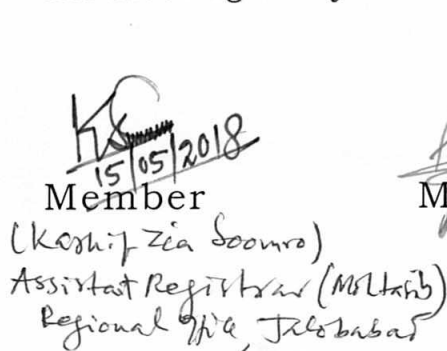 15/05/2018
Member M
(Kashif Zia Soomro)
Assistat Registrar (Mohtasib)
Regional Office, Jacobabad